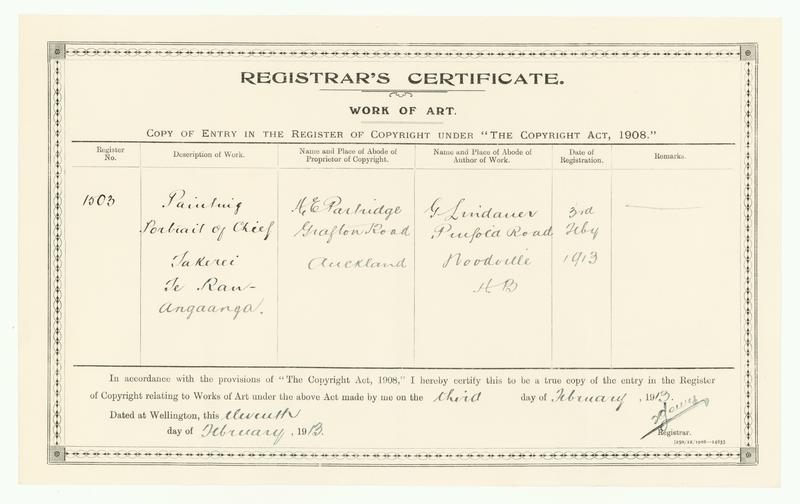 REGISTRAR'S CERTIFICATE.
WORK OF ART.
COPY OF ENTRY IN THE REGISTER OF COPYRIGHT UNDER "THE COPYRIGHT ACT, 1908."
Register No.
Description of Work.
Name and Place of Abode of Proprietor of Copyright.
Name and Place of Abode of Author of Work.
Date of Registration.
Remarks.
1503 Painting H. E. Partridge G Lindauer 3rd
Portrait of Chief Grafton Road Pinfold Road Feby
Takerei Auckland Woodville 1913
Te Rau- H B
Angaanga.
In accordance with the provisions of "The Copyright Act, 1908," I hereby certify this to be a true copy of the entry in the Register
of Copyright relating to Works of Art under the above Act made by me on the third day of February, 1913.
Dated at Wellington, this eleventh
day of February, 1913.
Registrar.